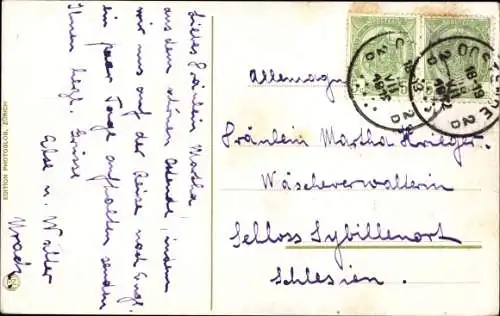 Liebes Fräulein Martha,
aus dem schönen Ostende, indem
wir uns auf der Reise nach Engl.
ein paar Tage aufhalten senden
Ihnen herzl. Grüsse
Else u. Walter
EDITION PHOTOGLOB, ZÜRICH
Allemagne
Fräulein Martha Krieger
Wäscheverwalterin
Schloss Sybillenort
Schlesien.